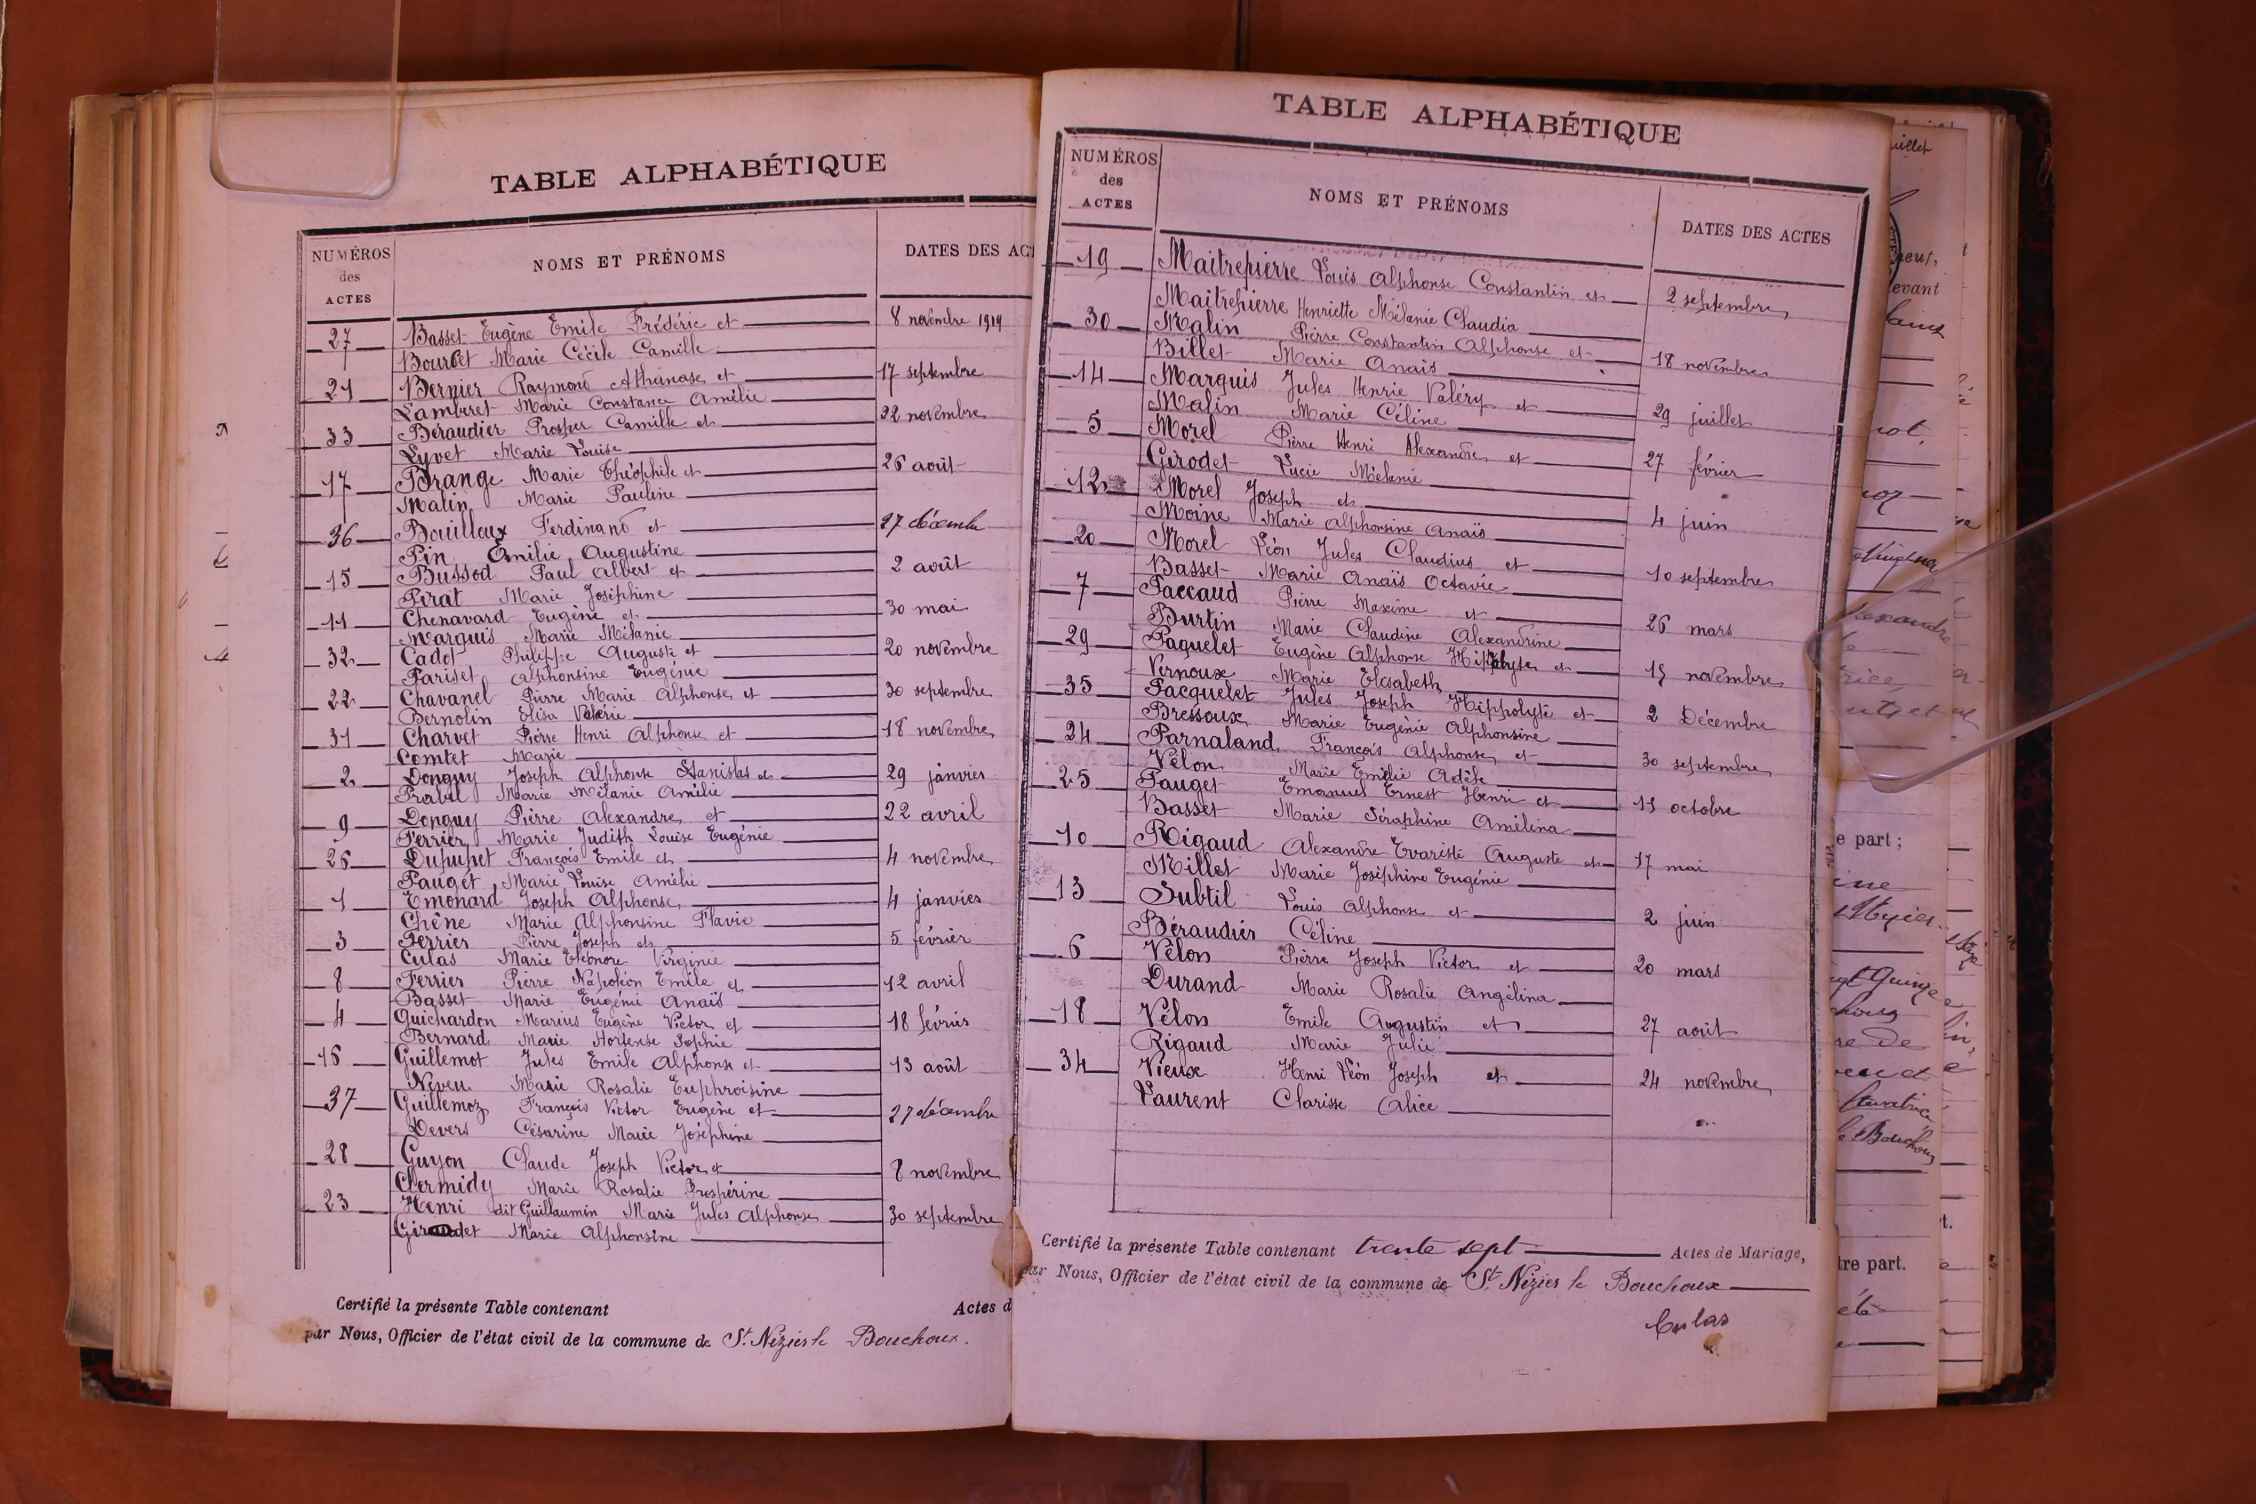 TABLE ALPHABÉTIQUE
NUMÉROS des ACTES NOMS ET PRÉNOMS DATES DES AC
27 Basset Eugène Emile Frédéric et 8 novembre 1919
Bourcet Marie Cécile Camille
21 Bernier Raymond Athanase et 17 septembre
Lamberet Marie Constance Amélie
33 Béraudier Prosper Camille et 22 novembre
Lyvet Marie Louise
17 Brange Marie Théophile et 26 août
Malin Marie Pauline
36 Bouilloux Ferdinand et 27 décembre
Pin Emilie Augustine
15 Bussod Paul Albert et 2 août
Pirat Marie Joséphine
11 Chenavard Eugène et 30 mai
Marquis Marie Mélanie
32 Cadot Philippe Auguste et 20 novembre
Pariset Alphonsine Eugénie
22 Chavanel Pierre Marie Alphonse et 30 septembre
Bernolin Elisa Valérie
31 Charvet Pierre Henri Alphonse et 18 novembre
Comtet Marie
2 Donguy Joseph Alphonse Stanislas et 29 janvier
Prabel Marie Mélanie Amélie
9 Donguy Pierre Alexandre et 22 avril
Ferrier Marie Judith Louise Eugénie
26 Dupupet François Emile et 4 novembre
Pauget Marie Louise Amélie
1 Emonard Joseph Alphonse 4 janvier
Chêne Marie Alphonsine Flavie
3 Ferrier Pierre Joseph et 5 février
Culas Marie Eléonore Virginie
8 Ferrier Pierre Napoléon Emile et 12 avril
Basset Marie Eugénie Anaïs
4 Guichardon Marius Eugène Victor et 18 février
Bernard Marie Hortense Sophie
16 Guillemot Jules Emile Alphonse et 13 août
Neveu Marie Rosalie Euphroisine
37 Guillemoz François Victor Eugène et 27 décembre
Devers Césarine Marie Joséphine
28 Guyon Claude Joseph Victor et 8 novembre
Clermidy Marie Rosalie Prospérine
23 Henri dit Guillaumin Marie Jules Alphonse 30 septembre
Giraudet Marie Alphonsine
Certifié la présente Table contenant Actes d
par Nous, Officier de l'état civil de la commune de St. Nizier le Bouchoux.
TABLE ALPHABÉTIQUE
NUMÉROS des ACTES NOMS ET PRÉNOMS DATES DES ACTES
19 Maitrepierre Louis Alphonse Constantin et 2 septembre
Maitrepierre Henriette Mélanie Claudia
30 Malin Pierre Constantin Alphonse et 18 novembre
Billet Marie Anaïs
14 Marquis Jules Henrie Valéry et 29 juillet
Malin Marie Céline
5 Morel Pierre Henri Alexandre et 27 février
Girodet Lucie Mélanie
12 Morel Joseph et 4 juin
Moine Marie Alphonsine Anaïs
20 Morel Léon Jules Claudius et 10 septembre
Basset Marie Anaïs Octavie
7 Paccaud Pierre Maxime et 26 mars
Burtin Marie Claudine Alexandrine
29 Paquelet Eugène Alphonse Hippolyte et 15 novembre
Vernoux Marie Elisabeth
35 Pacquelet Jules Joseph Hippolyte et 2 Décembre
Bressoux Marie Eugénie Alphonsine
24 Parnaland François Alphonse et 30 septembre
Vêlon Marie Emélie Adèle
25 Pauget Emanuel Ernest Henri et 15 octobre
Basset Marie Séraphine Amélina
10 Rigaud Alexandre Evariste Auguste et 17 mai
Millet Marie Joséphine Eugénie
13 Subtil Louis Alphonse et 2 juin
Béraudier Céline
6 Vêlon Pierre Joseph Victor et 20 mars
Durand Marie Rosalie Angélina
18 Vêlon Emile Augustin et 27 août
Rigaud Marie Julie
34 Vieux Henri Léon Joseph et 24 novembre
Laurent Clarisse Alice
Certifié la présente Table contenant trente sept Actes de Mariage,
par Nous, Officier de l'état civil de la commune de St. Nizier le Bouchoux
Culas
uillet
evant
e part ;
tre part.